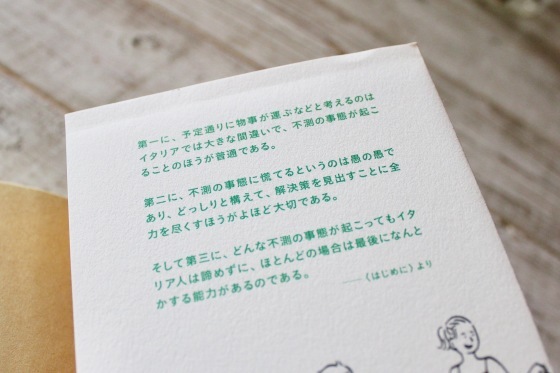 第一に、予定通りに物事が運ぶなどと考えるのは
イタリアでは大きな間違いで、不測の事態が起こ
ることのほうが普通である。
第二に、不測の事態に慌てるというのは愚の愚で
あり、どっしりと構えて、解決策を見出すことに全
力を尽くすほうがよほど大切である。
そして第三に、どんな不測の事態が起こってもイタ
リア人は諦めずに、ほとんどの場合は最後になんと
かする能力があるのである。
——〈はじめに〉より